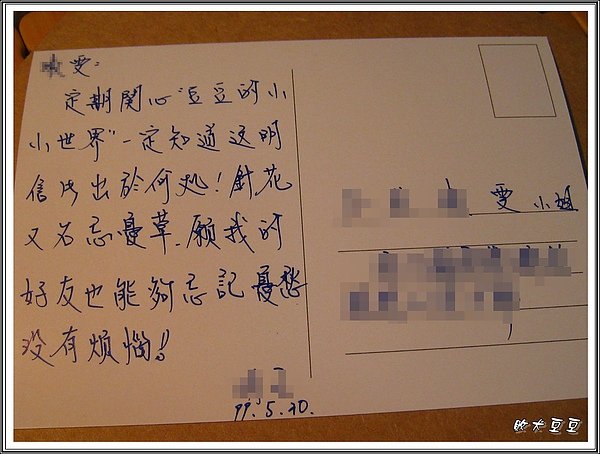 雯：
定期関心"豆豆的小
小世界"一定知道这明
信片出於何処！針花
又名忘憂草.願我的
好友也能夠忘記憂愁
没有煩惱!!
99.5.20.
雯 小姐
敗犬豆豆